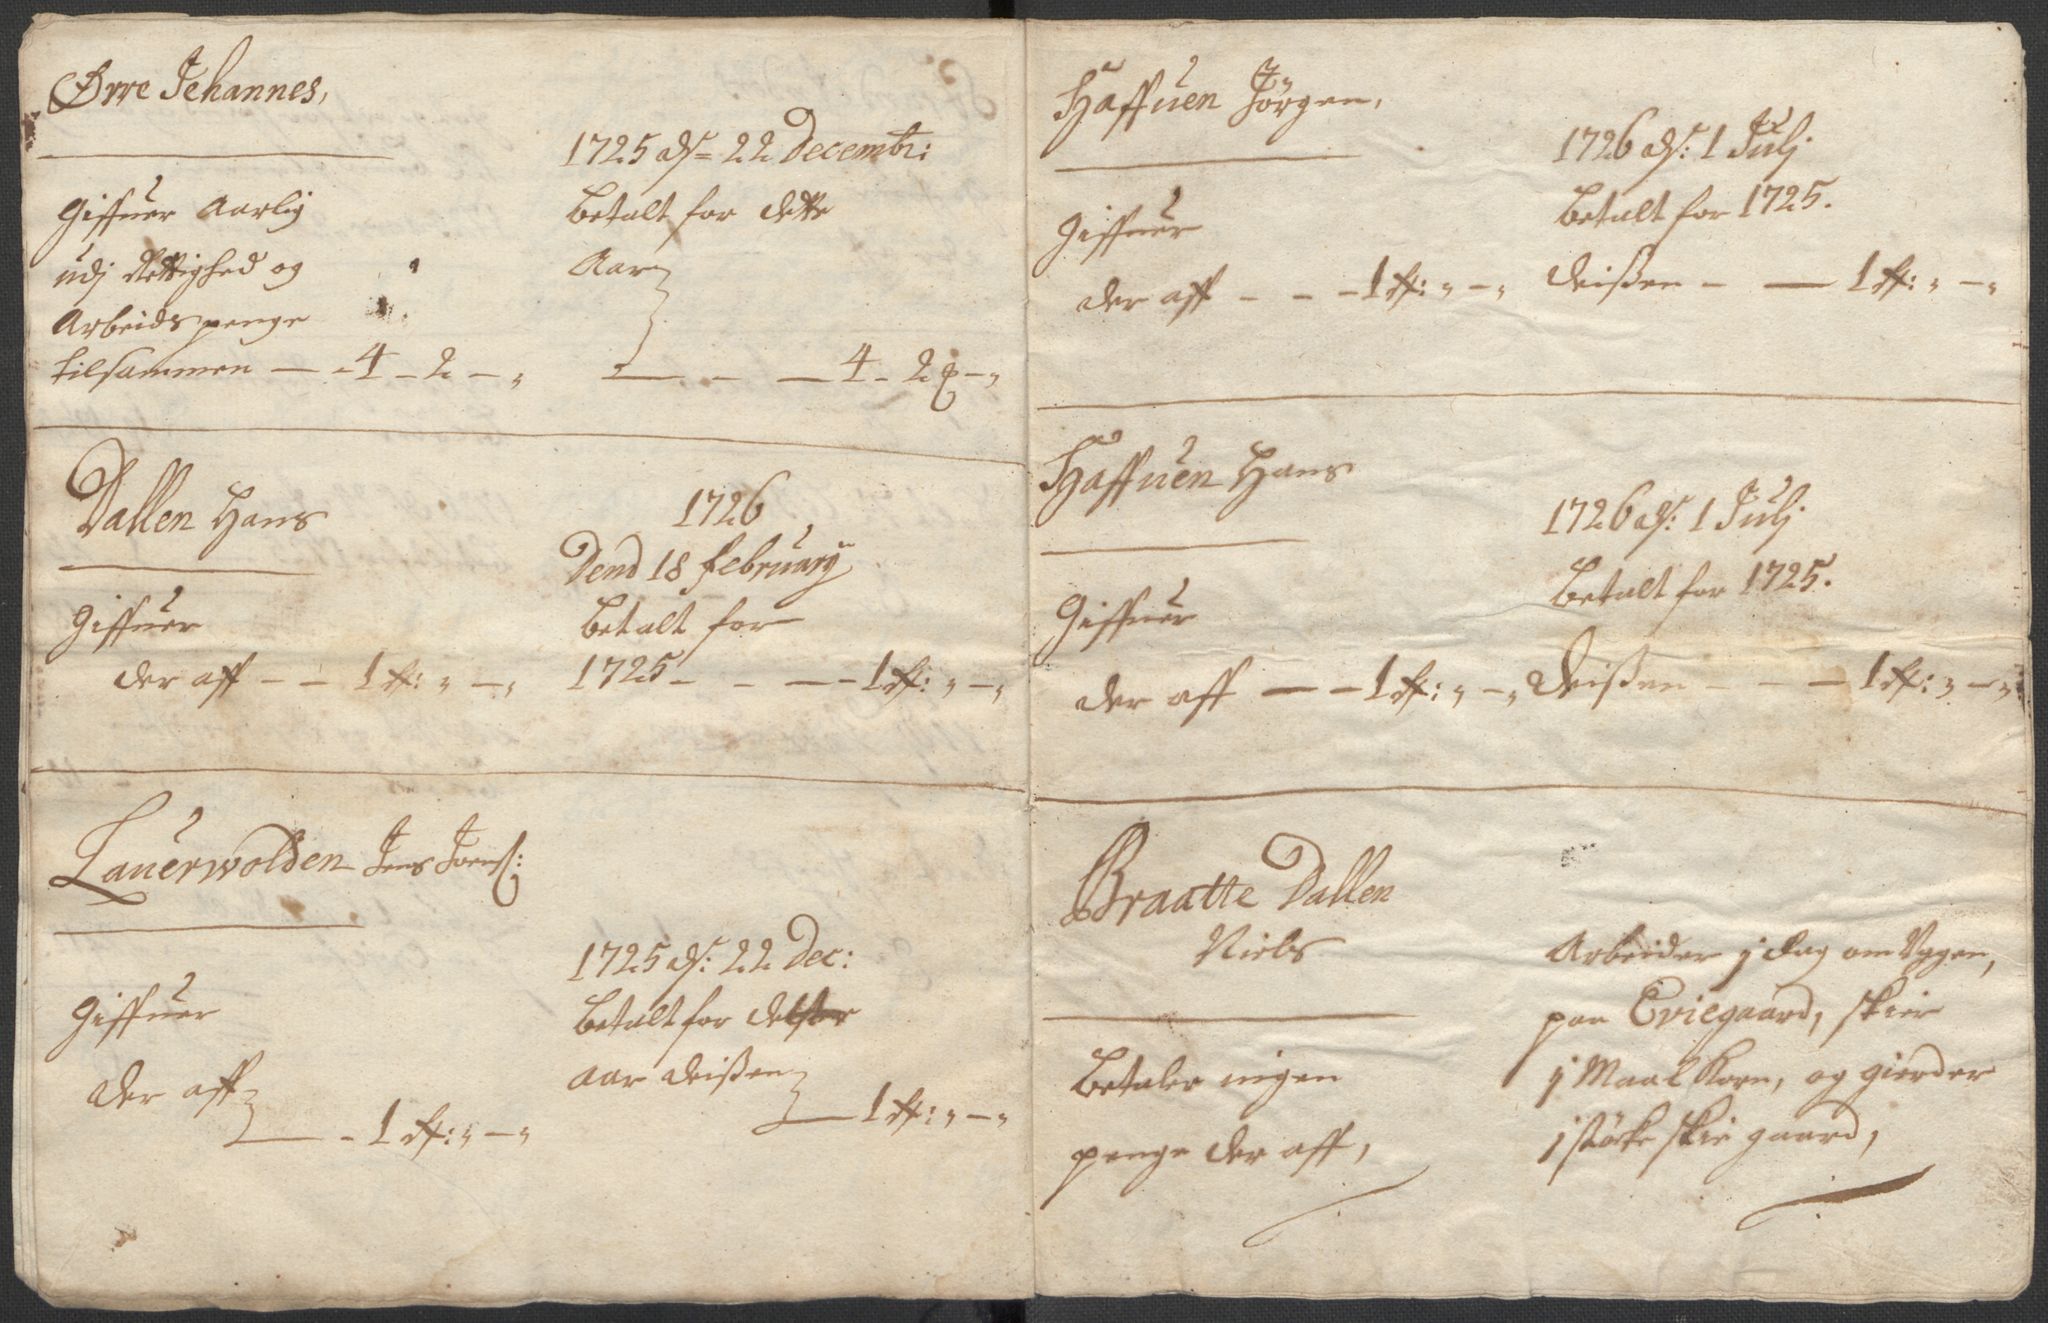 Ørre Jehannes,
Giffuer Aarlig
udj Rettighed og
Arbeids penge
tilsammen — - 4 - 2 - "
1725 ds = 22 Decembr:
betalt for dette
Aar
— - — 4 - 2 - "
Dallen Hans
Giffuer
der aff - - 1 rf: " - "
1726
Dend 18 February
betalt for
1725 - - — 1 rf: " - "
Lauerwolden Jens Joens:
Giffuer
der aff
— - 1 rf: " - "
1725 ds: 22 Dec:
betalt for
aar deißen
— 1 rf: " - "
Haffuen Jörgen,
Giffuer
der aff - - - 1 rf: " - "
1726 ds: 1 Julj
betalt for 1725.
deißen - — 1 rf: " - "
Haffuen Hans
Giffuer
der aff — - 1 rf: " - "
1726 ds: 1 Julj
betalt for 1725.
deißen - - - 1 rf: " - "
Braatte Dallen
Niels
betaler ingen
penge der aff,
Arbeider j dag om Ugen,
paa Eviegaard, skier
j Maal Korn, og gierder
j störke skie gaard,